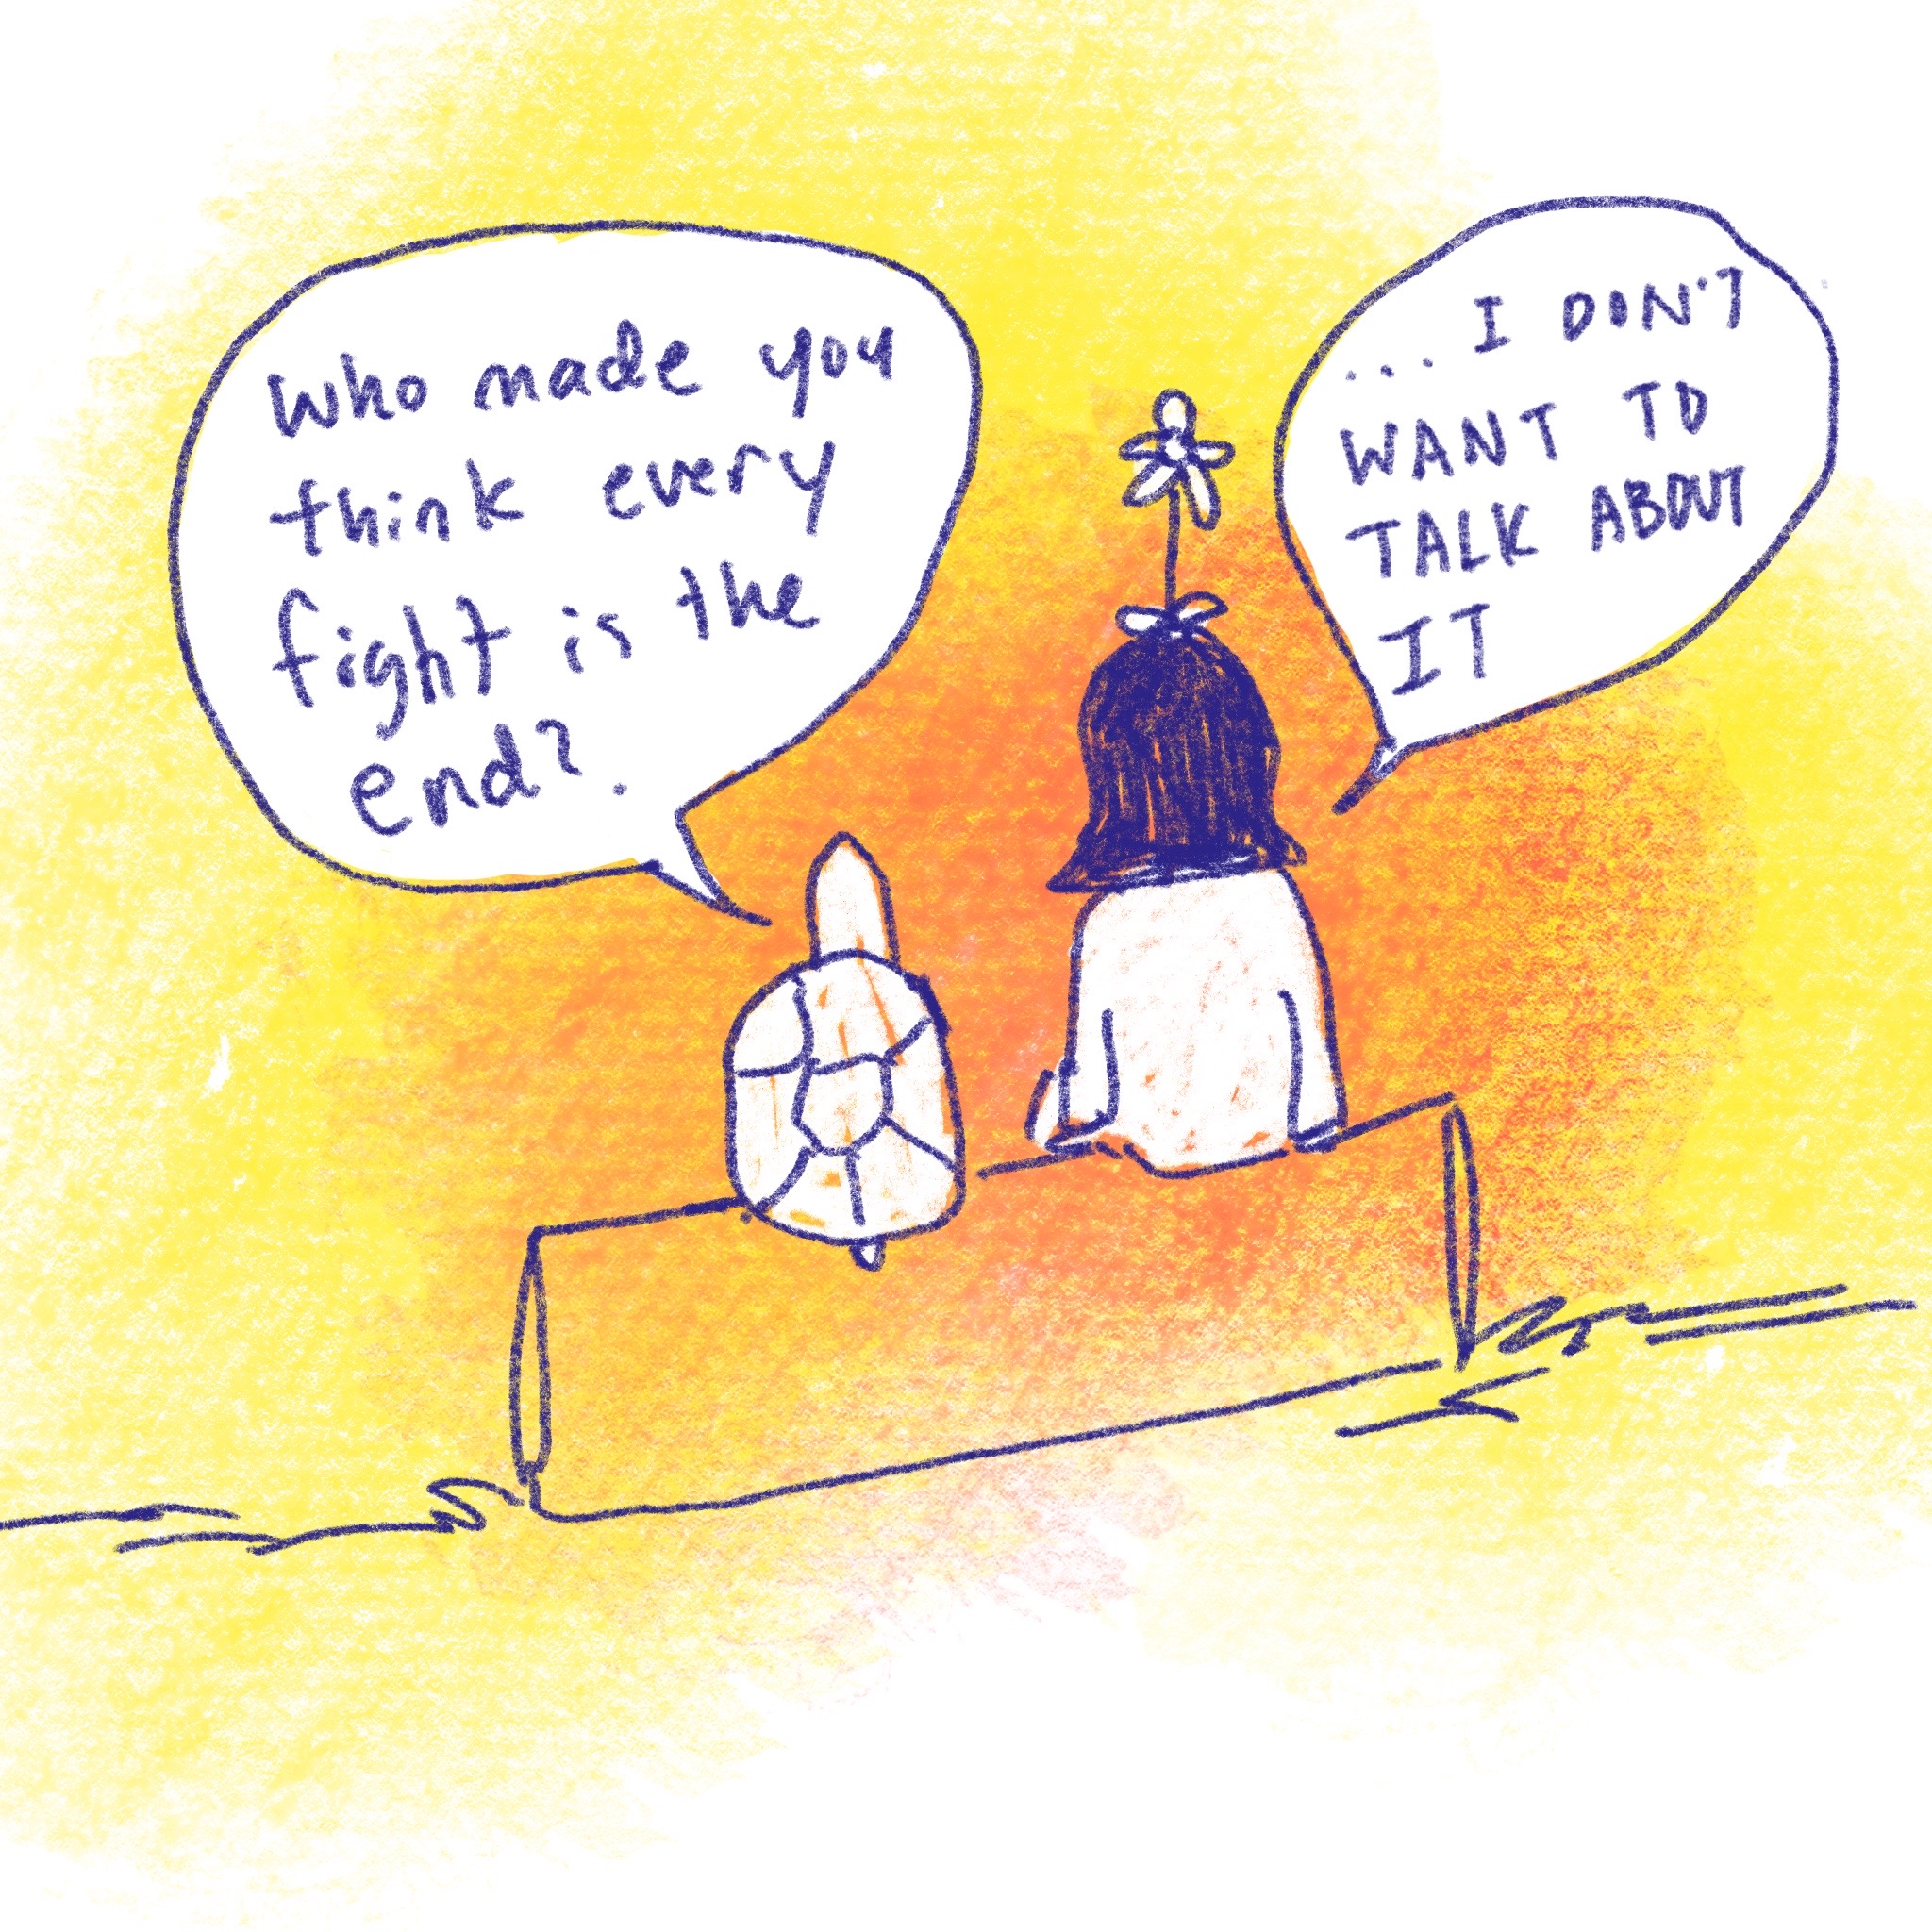 Who made you
think every
fight is the
end?.
... I DON'T
WANT TO
TALK ABOUT
IT